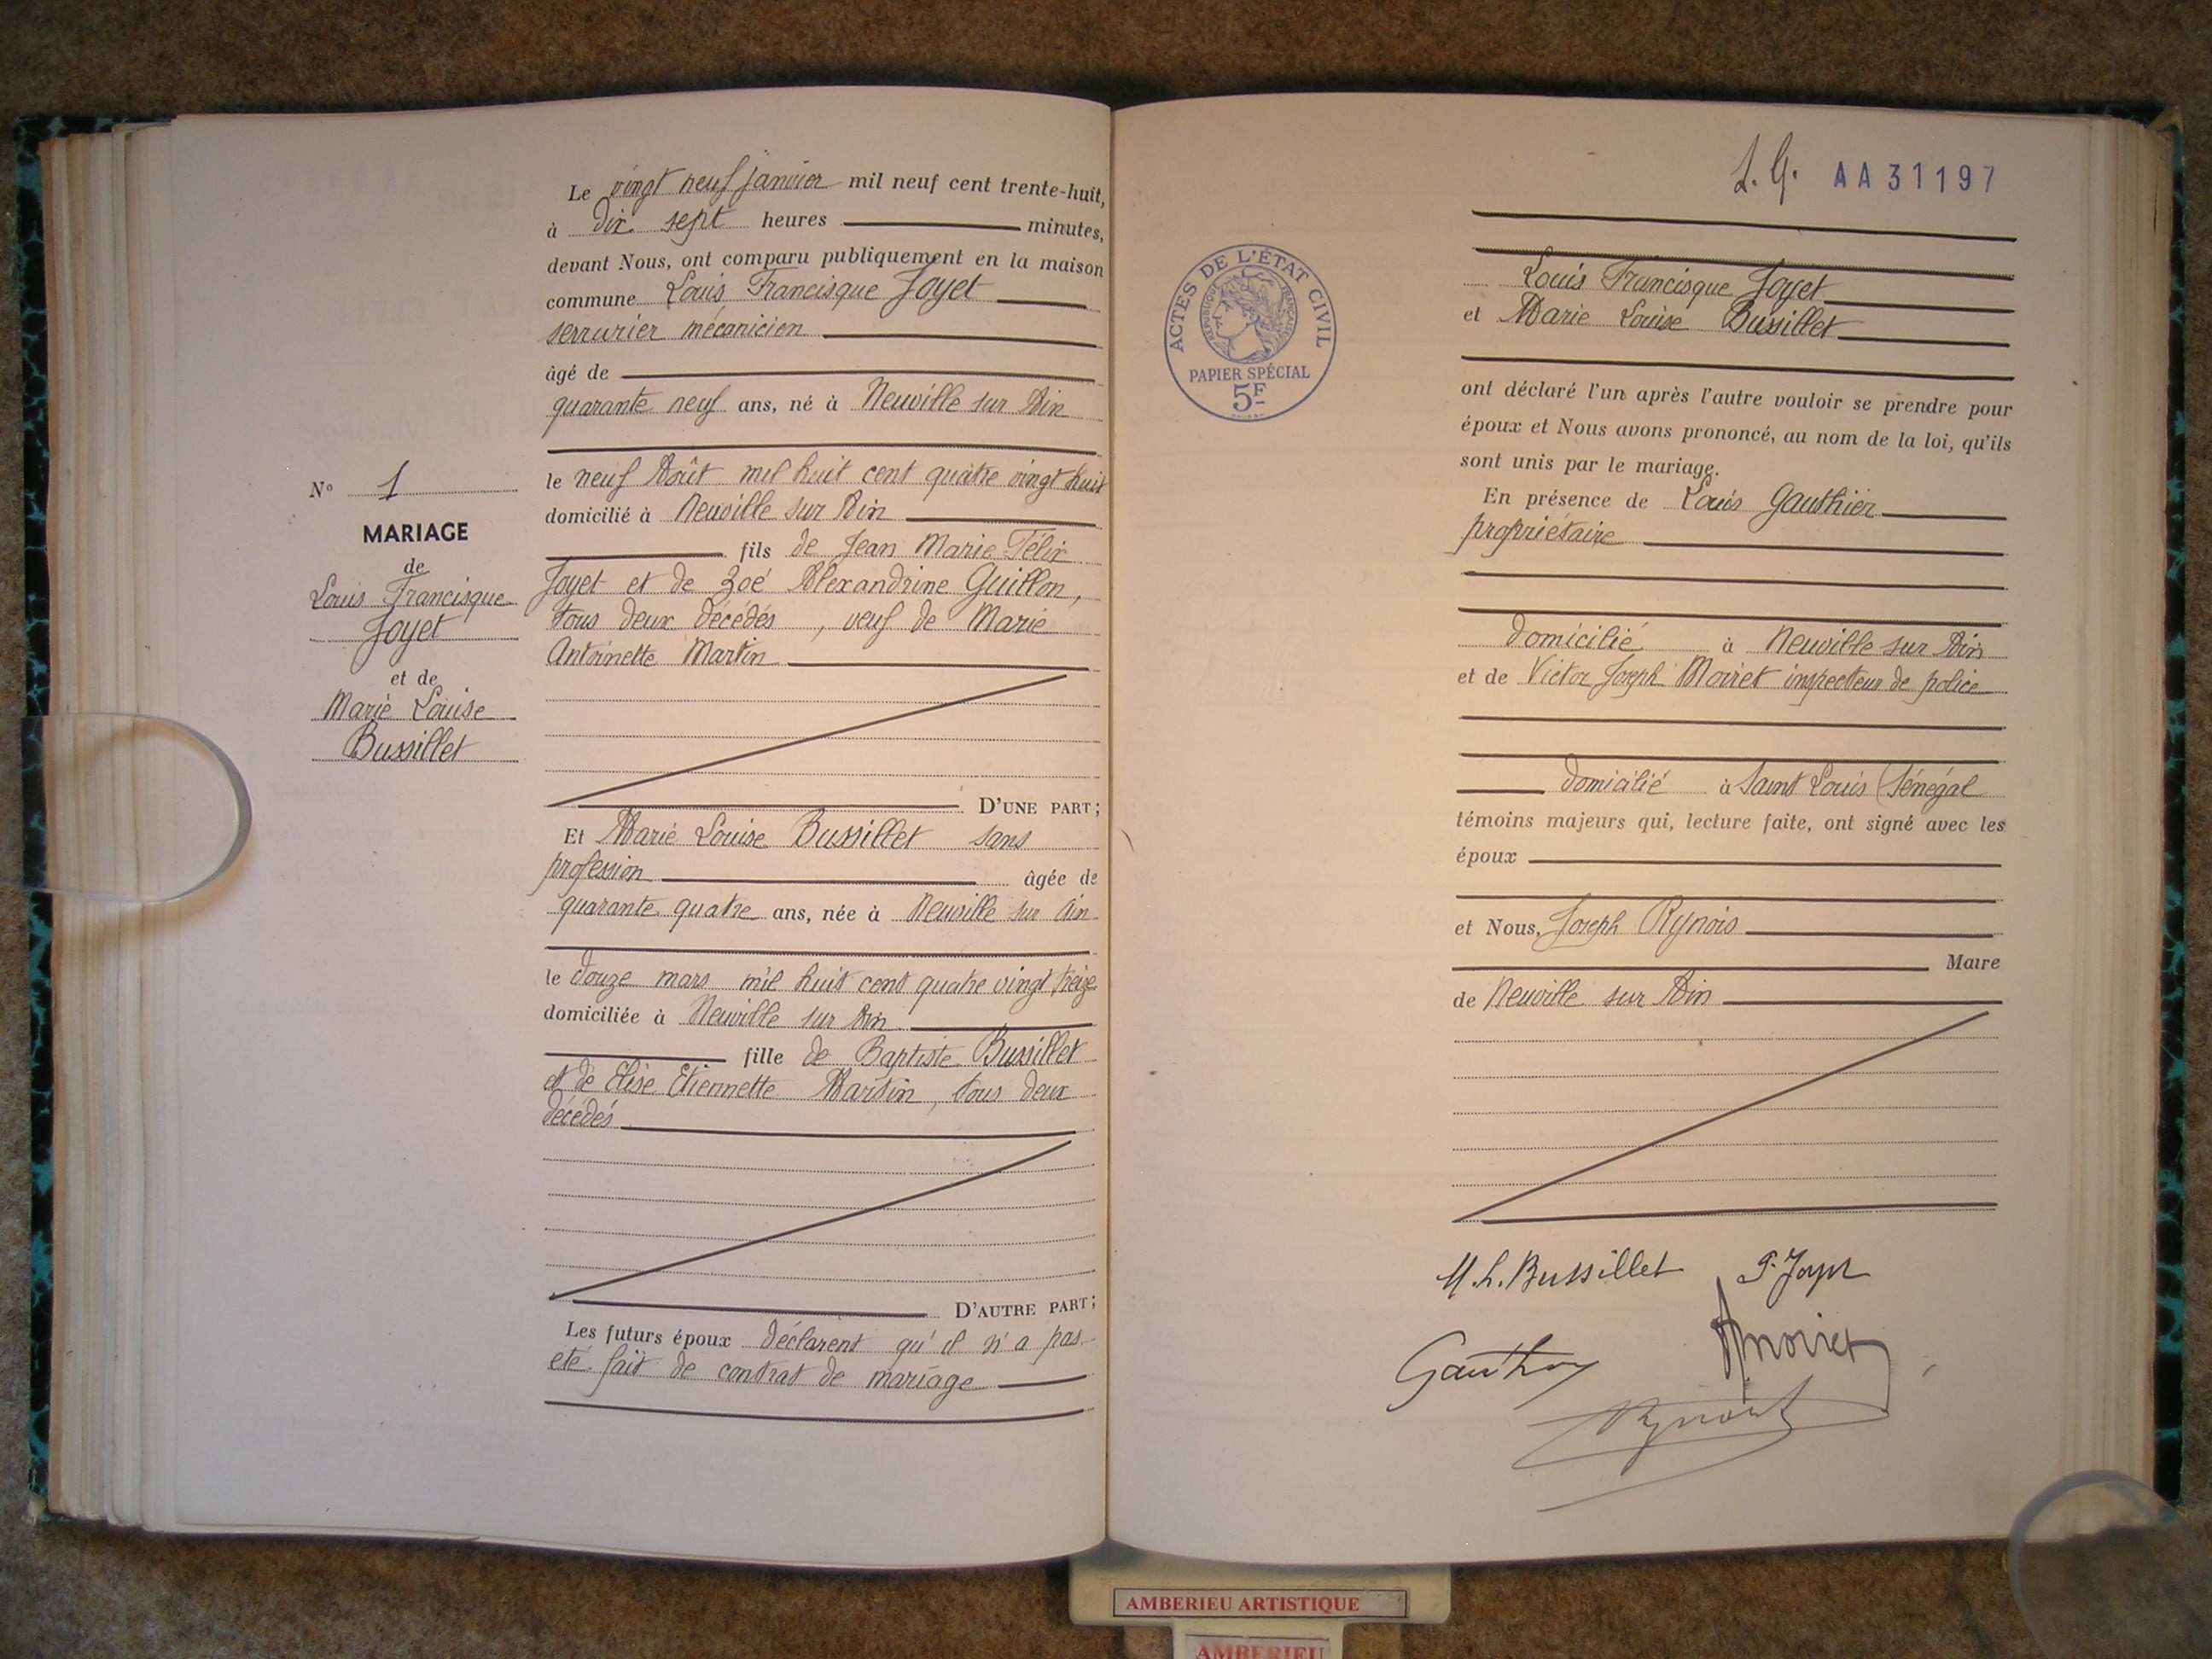 Le vingt neuf janvier mil neuf cent trente-huit,
à dix sept heures minutes,
devant Nous, ont comparu publiquement en la maison
commune Louis Francisque Joyet
serrurier mécanicien
âgé de
quarante neuf ans, né à Neuville sur Ain
le neuf Août mil huit cent quatre vingt huit
domicilié à Neuville sur Ain
fils de Jean Marie Félix
Joyet et de Zoé Alexandrine Guillon,
tous deux décédés, veuf de Marie
Antoinette Martin
D'UNE PART;
N° 1
MARIAGE
de
Louis Francisque
Joyet
et de
Marie Louise
Bussillet
Et Marie Louise Bussillet sans
profession âgée de
quarante quatre ans, née à Neuville sur Ain
le douze mars mil huit cent quatre vingt treize
domiciliée à Neuville sur Ain
fille de Baptiste Bussillet
et de Elise Etiennette Martin, tous deux
décédés
D'AUTRE PART;
Les futurs époux déclarent qu'il n'a pas
été fait de contrat de mariage
AA31197
ACTES DE L'ÉTAT CIVIL
RÉPUBLIQUE FRANÇAISE
PAPIER SPÉCIAL
5F
Louis Francisque Joyet
et Marie Louise Bussillet
ont déclaré l'un après l'autre vouloir se prendre pour
époux et Nous avons prononcé, au nom de la loi, qu'ils
sont unis par le mariage.
En présence de Louis Gauthier
propriétaire
domicilié à Neuville sur Ain
et de Victor Joseph Moiret inspecteur de police
domicilié à Saint Louis (Sénégal
témoins majeurs qui, lecture faite, ont signé avec les
époux
et Nous, Joseph Rynois
Maire
de Neuville sur Ain
M. L. Bussillet F. Joyet
Gauthier Moiret
Rynois
AMBERIEU ARTISTIQUE
AMBERIEU